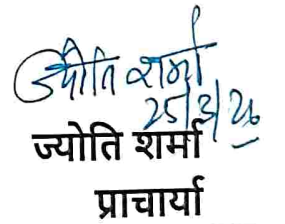 ज्योति शर्मा
25/3/26
ज्योति शर्मा
प्राचार्या